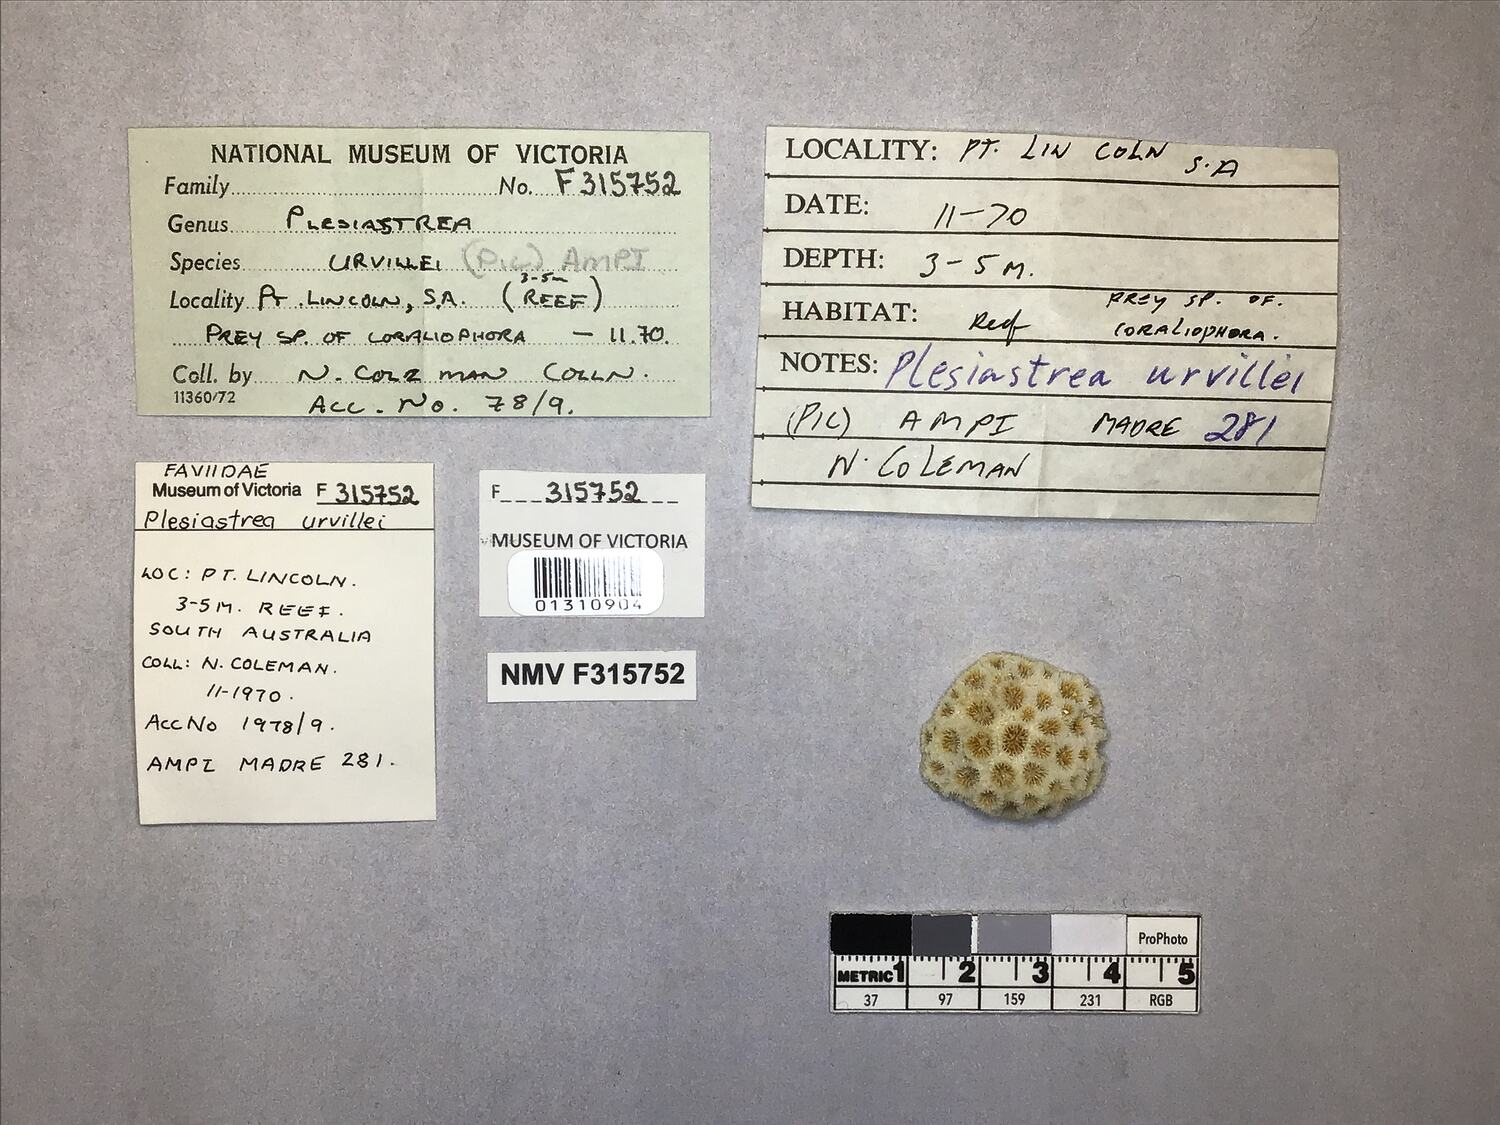 NATIONAL MUSEUM OF VICTORIA
Family No. F315752
Genus PLESIASTREA
Species URVILLEI (PIC) AMPI
3-5m
Locality PT. LINCOLN, S.A. (REEF)
PREY SP. OF CORALIOPHORA — 11.70.
Coll. by N. COLEMAN COLLN.
11360/72
ACC. No. 78/9.
LOCALITY: PT. LINCOLN S.A
DATE: 11-70
DEPTH: 3-5 M.
HABITAT: Reef PREY SP. OF.
CORALIOPHORA.
NOTES: Plesiastrea urvillei
(PIC) AMPI MADRE 281
N. COLEMAN
FAVIIDAE
Museum of Victoria F 315752
Plesiastrea urvillei
LOC: PT. LINCOLN.
3-5M. REEF.
SOUTH AUSTRALIA
COLL: N. COLEMAN.
11-1970.
Acc No 1978/9.
AMPI MADRE 281.
F 315752
MUSEUM OF VICTORIA
01310904
NMV F315752
ProPhoto
METRIC 1 2 3 4 5
37 97 159 231 RGB